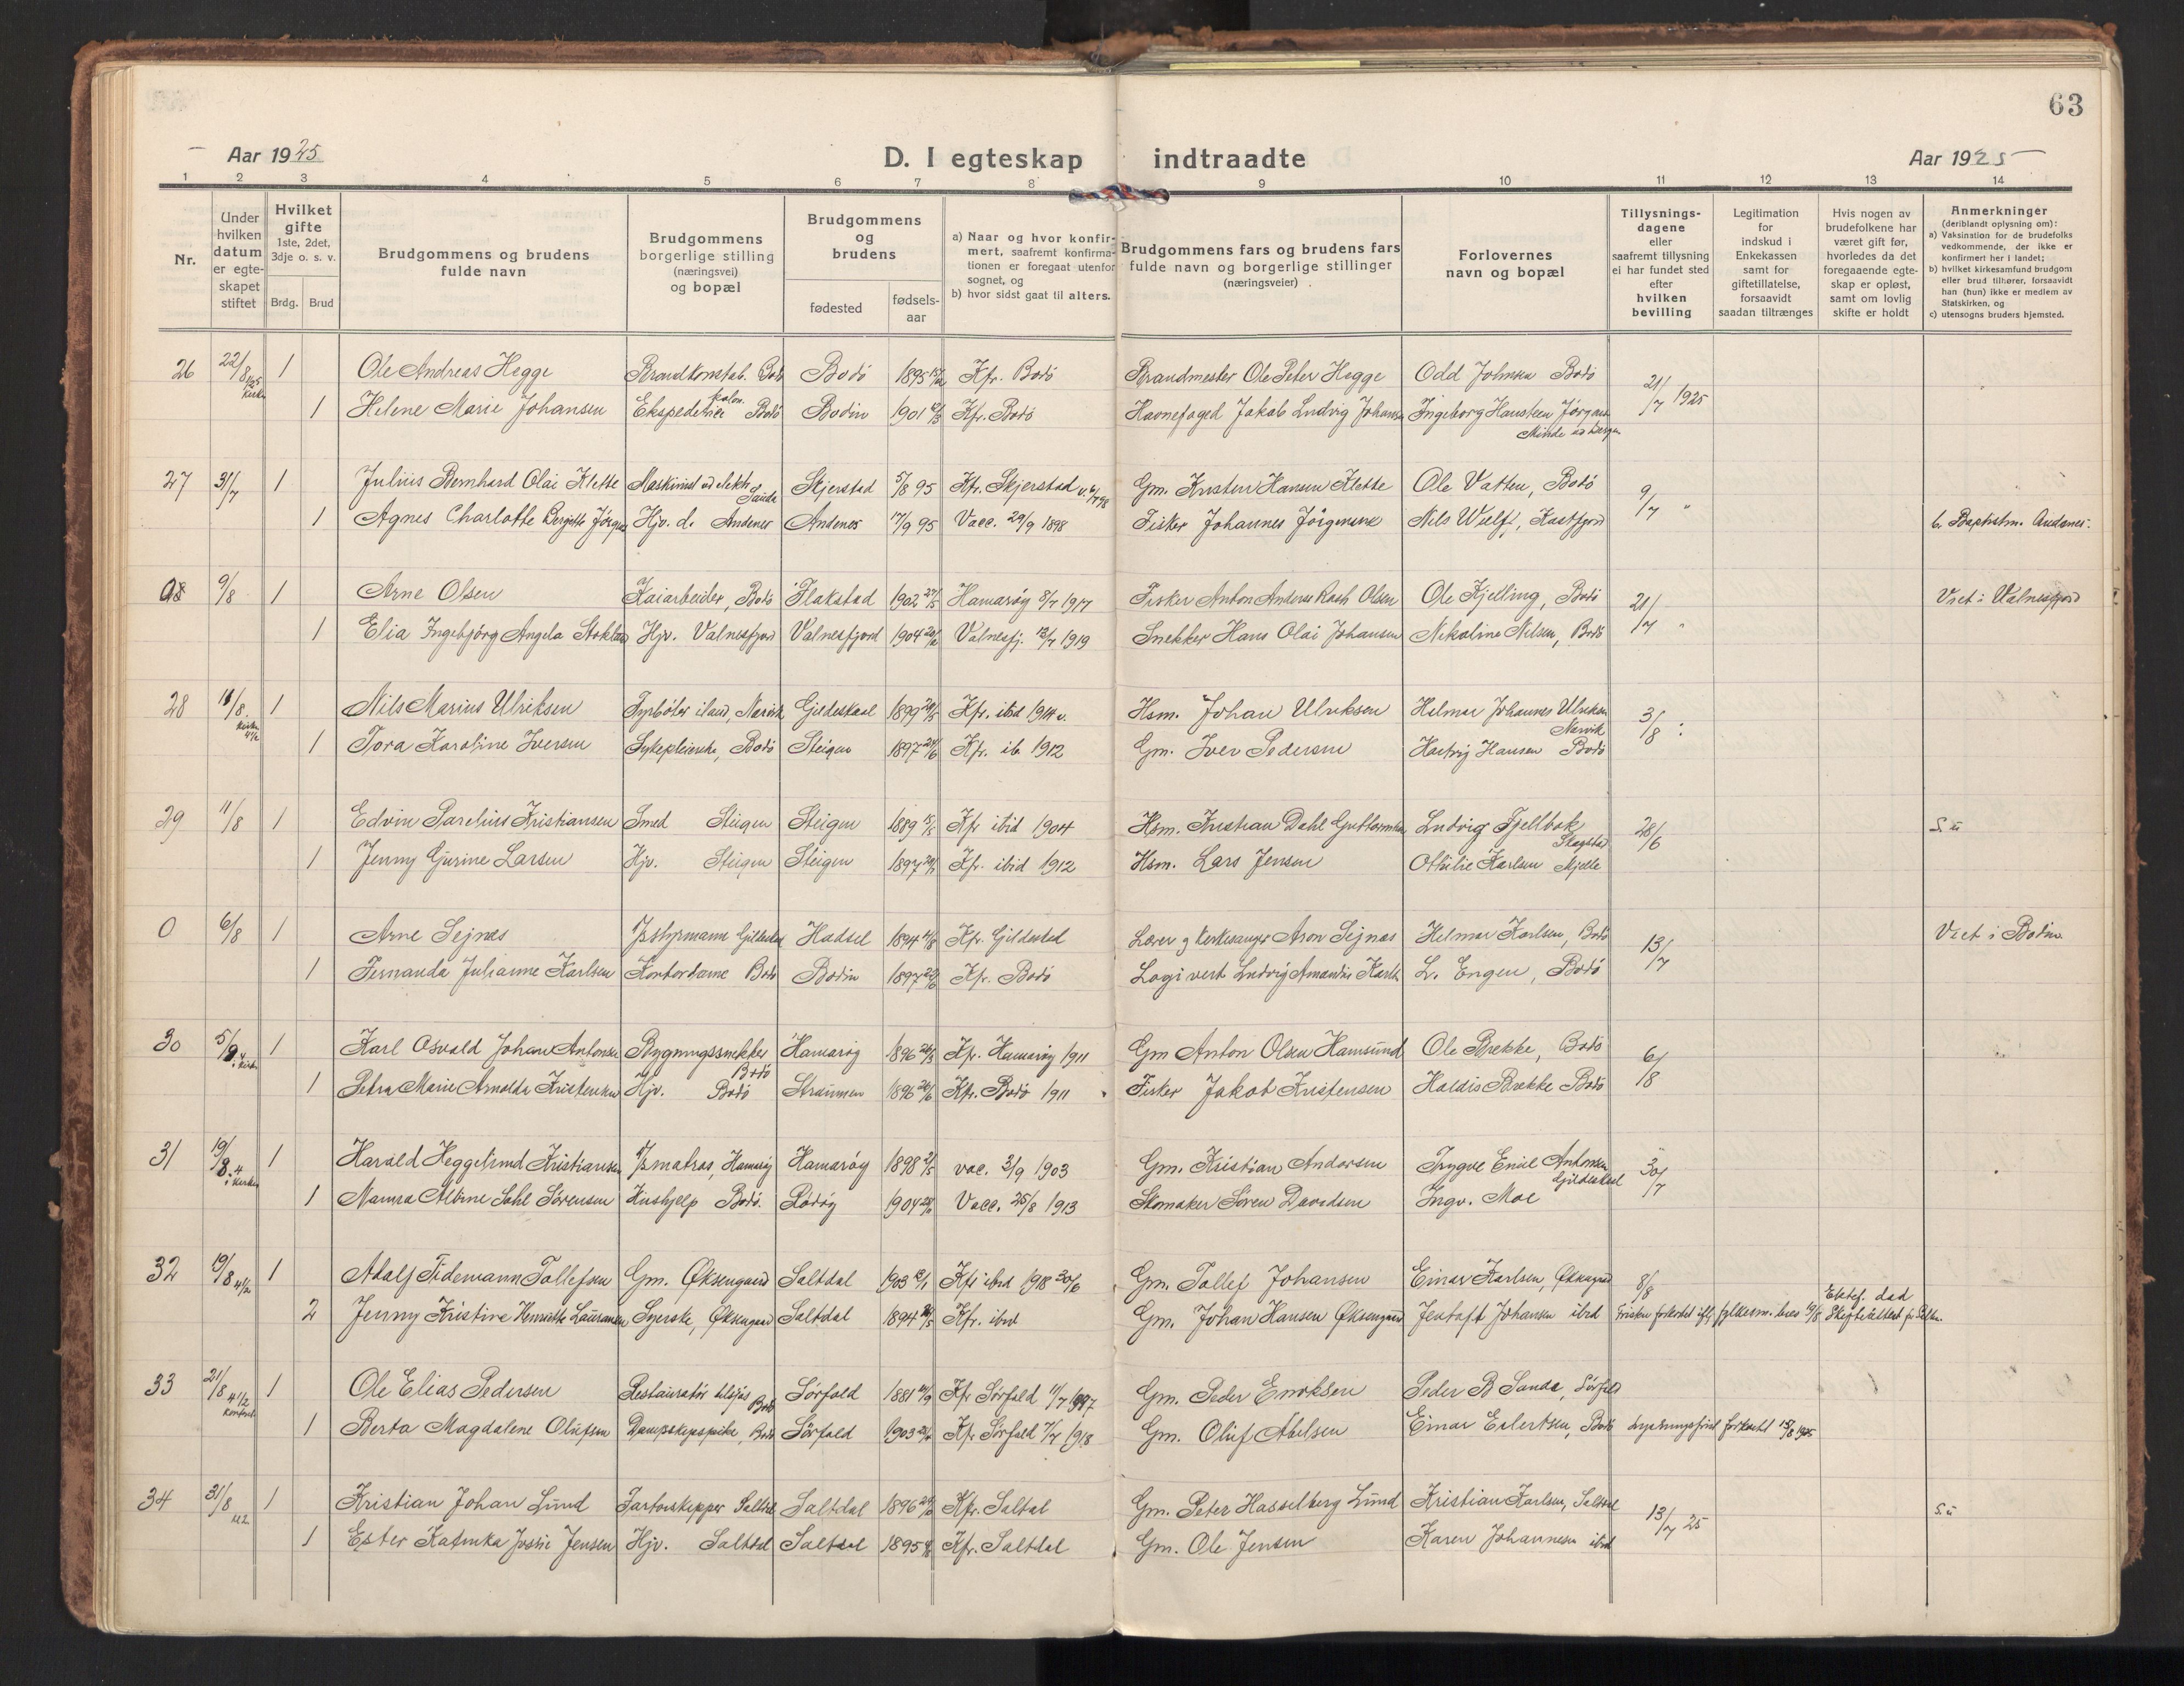 63
Aar 1925
D. I egteskap indtraadte
Aar 1925
1 2 3 4 5 6 7 8 9 10 11 12 13 14
Nr.
Under hvilken datum er egte-skapet stiftet
Hvilket gifte 1ste, 2det, 3dje o. s. v.
Brdg. Brud
Brudgommens og brudens fulde navn
Brudgommens borgerlige stilling (næringsvei) og bopæl
Brudgommens og brudens
fødested
fødsels-aar
a) Naar og hvor konfir-mert, saafremt konfirma-tionen er foregaat utenfor sognet, og
b) hvor sidst gaat til alters.
Brudgommens fars og brudens fars fulde navn og borgerlige stillinger (næringsveier)
Forlovernes navn og bopæl
Tillysnings-dagene eller saafremt tillysning ei har fundet sted efter hvilken bevilling
Legitimation for indskud i Enkekassen samt for giftetillatelse, forsaavidt saadan tiltrænges
Hvis nogen av brudefolkene har været gift før, hvorledes da det foregaaende egte-skap er opløst, samt om lovlig skifte er holdt
Anmerkninger (deriblandt oplysning om):
a) Vaksination for de brudefolks vedkommende, der ikke er konfirmert her i landet;
b) hvilket kirkesamfund brudgom eller brud tilhører, forsaavidt han (hun) ikke er medlem av Statskirken, og
c) utensogns bruders hjemsted.
26 22/8 1 Ole Andreas Hegge Brandkonstab. Bodø Bodø 1895 Kfr. Bodø Brandmester Ole Peter Hegge Odd Johnsen Bodø 21/7 1925
1 Helene Marie Johansen Ekspeditrice Bodø Bodin 1901 Kfr. Bodø Havnefoged Jakob Ludvig Johansen Ingeborg Hausteen Jørgensen
Minde ved Bergen
27 31/7 1 Julius Bernhard Olai Klette Maskinist Skjerstad 5/8 95 Kfr. Skjerstad Gm. Kristen Hansen Klette Ole Vatten, Bodø 9/7 "
1 Agnes Charlotte Bergitte Jørgens Hjv. d. Andenes Andenes 17/9 95 Vacc. 29/9 1898 Fisker Johannes Jörgensen Nils Wulff, b. Baptistm. Andenes.
9/8 1 Arne Olsen Kaiarbeider, Bodø Flakstad 1902 Hamarøy 8/7 1917 Fisker Anton Andersen Olsen Ole Kjelling, Bodø 21/7 " Viet i Valnesfjord
1 Elia Ingebjørg Angela Hjv. Valnesfjord Valnesfjord 1904 Valnesfj. 1919 Snekker Hans Olai Johansen Nikoline Nilsen, Bodø
28 11/8 1 Nils Marius Ulriksen Fyrbøter Narvik Gildeskaal 1899 Kfr. ibid 1914 Hsm. Johan Ulriksen Helmar Johannes Ulriksen Narvik 3/8
1 Tora Karoline Iversen Sykepleierske, Bodø Steigen 1897 Kfr. ib. 1912 Gm. Iver Pedersen Hartvig Hansen Bodø
29 11/8 1 Edvin Parelius Kristiansen Smed Steigen Steigen 1889 Kfr ibid 1904 Hsm. Kristian Dahl Guttormsen Ludvig Fjellbak Skagstad 28/6 S. u
1 Jenny Gurine Larsen Hjv. Steigen Steigen 1897 Kfr. ibid 1912 Hsm. Lars Jensen Othilie Karlsen Mjelle
0 6/8 1 Arne Sejnæs Hadsel 1894 Kfr. Gildeskal Lærer og Kirkesanger Aron Sejnæs Helmar Karlsen, Bodø 13/7 Viet i Bodin
1 Fernanda Julianne Karlsen Kontordame Bodø Bodin 1897 Kfr. Bodø Logivert Ludvig Amandus Karlsen L. Engen, Bodø
30 5/9 1 Karl Osvald Johan Antonsen Bygningssnekker Bodø Hamarøy 1896 Kfr. Hamarøy 1911 Gm Anton Olsen Hamsund Ole Brekke, Bodø 6/8
1 Petra Marie Arnolda Kristensen Hjv. Bodø Straumen 1896 Kfr. Bodø 1911 Fisker Jakob Kristensen Haldis Brekke Bodø
31 19/8 1 Harald Heggelund Kristiansen matros, Hamarøy Hamarøy 1898 vac. 3/9 1903 Gm. Kristian Andersen Trygve Emil Antonsen Gildeskaal 30/7
1 Nanna Albine Dahl Sørensen Hushjelp Bodø. Rødøy 1904 Vacc. 25/8 1913 Skomaker Søren Davidsen Ingv. Moe
32 19/8 4 1/2 1 Adolf Tidemann Tollefsen Gm. Øksengaard Saltdal 1903 Kfr ibid 1918 Gm. Tollef Johansen Einar Karlsen, Øksengaard 8/8 Ektef. død
2 Jenny Kristine Henriette Lauransen Syerske, Øksengaard Saltdal 1894 Kfr. ibid Gm. Johan Hansen Øksengaard Jentoft Johansen ibid Fristen forkortet Skifteattest fr. Salten.
33 21/8 4 1/2 1 Ole Elias Pedersen Restauratør Bodø Sørfold 1881 Kfr Sørfold 11/7 1897 Gm. Peder Enoksen Peder B Sande, Sørfold
1 Berta Magdalene Olufsen Dampskipspike, Bodø Sørfold 1903 Kfr Sørfold 7/7 1918 Gm. Oluf Abelsen Einar Eilertsen, Bodø forkortet 15/8 1925
34 31/8 1 Kristian Johan Lund Jarteskipper Saltdal Saltdal 1896 Kfr. Saltal Gm. Peter Hasselberg Lund Kristian Karlsen, Saltdal 13/7 25 S. u
1 Ester Katinka Josie Jensen Hjv. Saltdal Saltdal 1895 Kfr. Saltdal Gm. Ole Jensen Karen Johannesen ibid